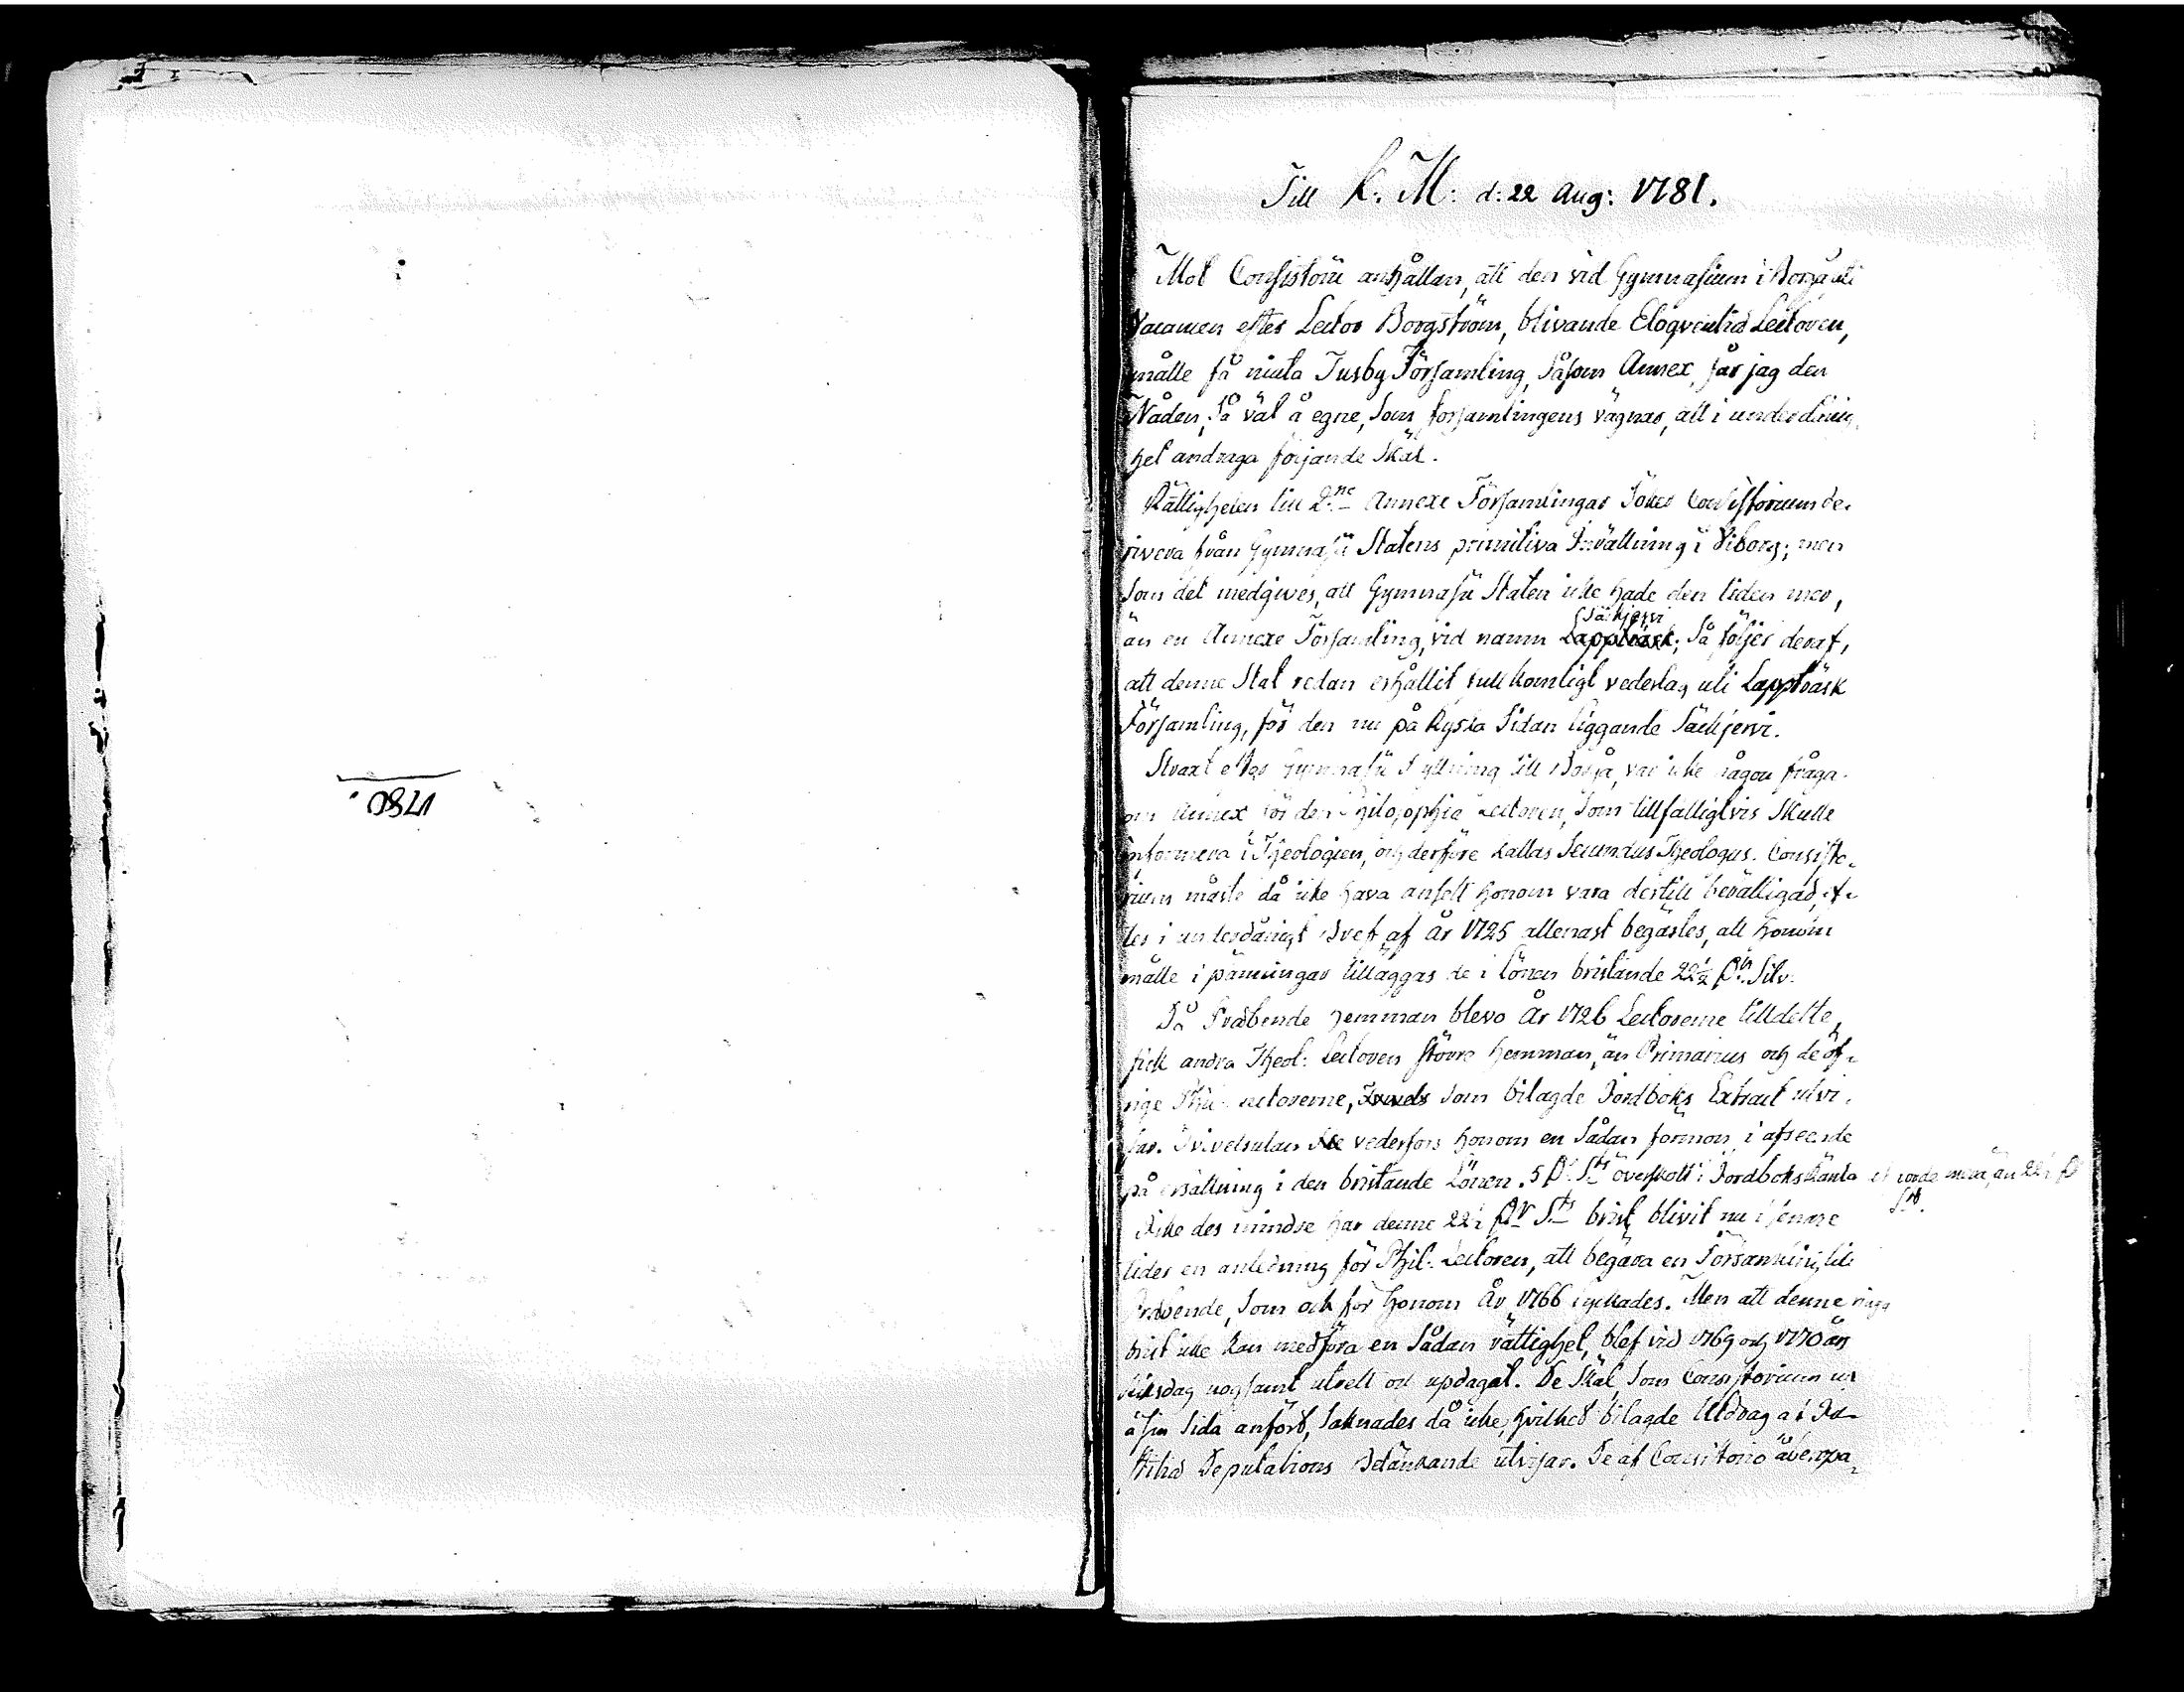 1780.
Till K: M: d: 22 Aug: 1781.
Mot Consistorii anhållan, att den vid Gymnasium i Borgå uti
Vacancen efter Lector Borgström, blivande Eloqventiæ Lectoren,
måtte få niuta Tusby Församling, såsom Annex, får jag den
Nåden, så väl å egne, som församlingens vägnar, att i underdånig-
het andraga följande skäl.
Rättigheten till 2ne Annexe Församlingar söker Consistorium de-
rivera från Gymnasii Statens primitiva Inrättning i Viborg; men
som det medgives, att Gymnasii Staten icke hade den tiden mer,
Säkjervi
än en Annexe Församling, vid namn Lappträsk; så följer deraf,
att denne Stat redan erhållit fullkomligt vederlag uti Lappträsk
Församling, för den nu på Ryska Sidan liggande Säckjervi.
Straxt efter Gymnasii flyttning till Borgå, var icke någon fråga
om Annex för den Philosophiæ Lectoren, som tillfälligtvis skulle
informera i Theologien, och derföre kallas Secundus Theologus. Consisto-
rium måste då icke hava ansett honom vara dertill berättigad, ef-
ter i underdånigt bref af År 1725 allenast begärtes, att honom
måtte i pänningar tilläggas de i lönen bristande 22½ Dr Silv.
Då Præbende hemman blevo År 1726 Lectorerne tilldelte,
fick andra Theol: Lectoren större hemman, än Primarius och de öf-
rige Phil: Lectorerne, som bilagde Jordboks Extract utvi-
sar. Tvivelsutan vederfors honom en sådan förmon i afseende
på ersättning i den bristande Lönen. 5 Dr Smt överskott i Jordboks Ränta är vorde mera, än 22½ Dr
Smt.
Icke des mindre har denne 22½ Dr Smt brist blivit nu i senare
tider en anledning för Phil: Lectoren, att begära en Församling till
Præbende, som ock för honom År 1766 lyckades. Men att denne ringa
brist icke kan medföra en sådan rättighet, blef vid 1769 och 1770 års
Riksdag nogsamt utrett och updagat. De skäl, som Consistorium nu
å sin sida anfört, saknades då icke, hvilket bilagde Utdrag af Ju-
stitiæ Deputations Betänkande utvisar. De af Consistorio åberopa-